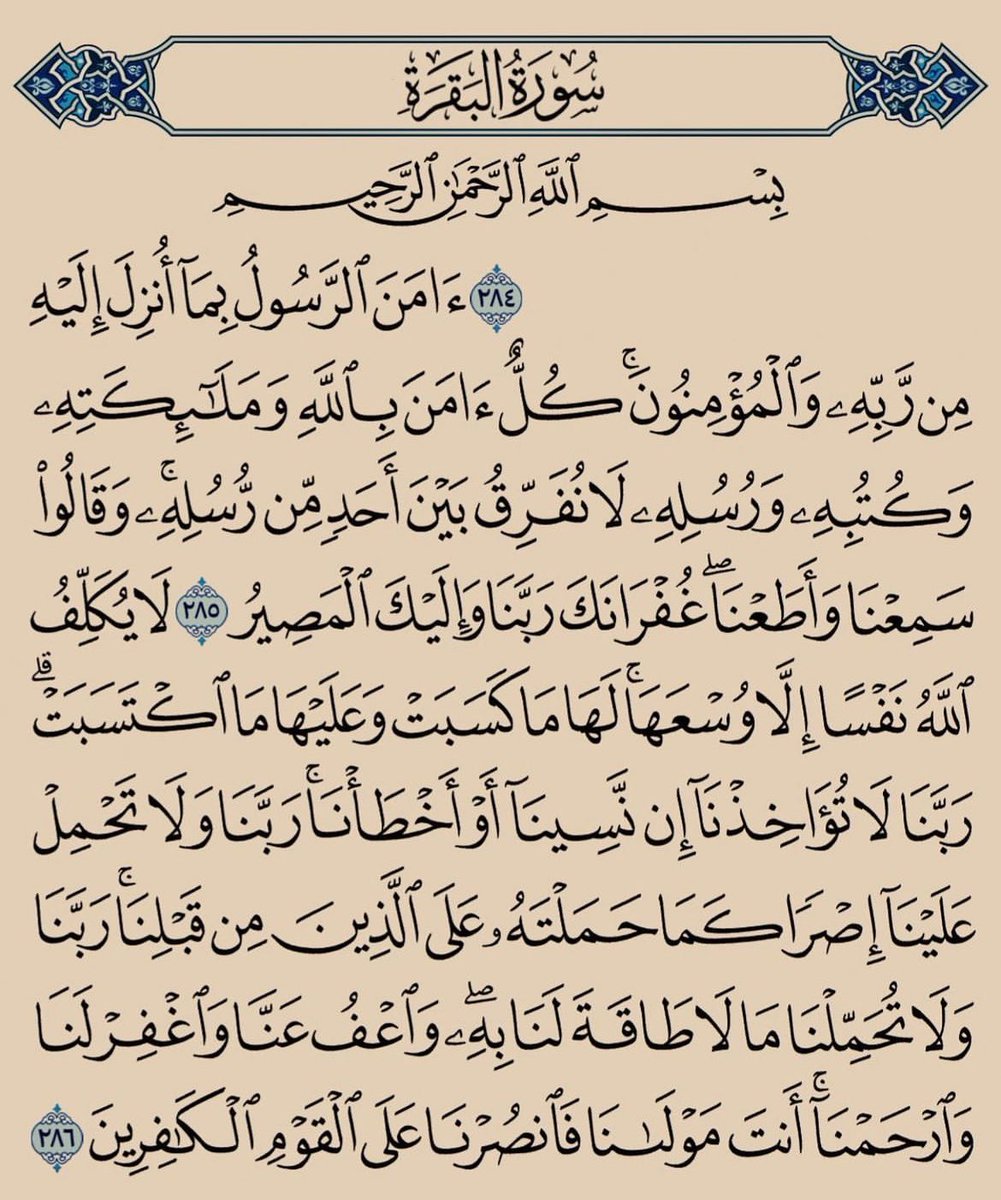 سُورَةُ البَقَرَةِ
بِسْمِ ٱللَّهِ ٱلرَّحْمَٰنِ ٱلرَّحِيمِ
٢٨٤ ءَامَنَ ٱلرَّسُولُ بِمَآ أُنزِلَ إِلَيْهِ
مِن رَّبِّهِۦ وَٱلْمُؤْمِنُونَ ۚ كُلٌّ ءَامَنَ بِٱللَّهِ وَمَلَٰٓئِكَتِهِۦ
وَكُتُبِهِۦ وَرُسُلِهِۦ لَا نُفَرِّقُ بَيْنَ أَحَدٍ مِّن رُّسُلِهِۦ ۚ وَقَالُوا۟
سَمِعْنَا وَأَطَعْنَا ۖ غُفْرَانَكَ رَبَّنَا وَإِلَيْكَ ٱلْمَصِيرُ ٢٨٥ لَا يُكَلِّفُ
ٱللَّهُ نَفْسًا إِلَّا وُسْعَهَا ۚ لَهَا مَا كَسَبَتْ وَعَلَيْهَا مَا ٱكْتَسَبَتْ ۗ
رَبَّنَا لَا تُؤَاخِذْنَآ إِن نَّسِينَآ أَوْ أَخْطَأْنَا ۚ رَبَّنَا وَلَا تَحْمِلْ
عَلَيْنَآ إِصْرًا كَمَا حَمَلْتَهُۥ عَلَى ٱلَّذِينَ مِن قَبْلِنَا ۚ رَبَّنَا
وَلَا تُحَمِّلْنَا مَا لَا طَاقَةَ لَنَا بِهِۦ ۖ وَٱعْفُ عَنَّا وَٱغْفِرْ لَنَا
وَٱرْحَمْنَآ ۚ أَنتَ مَوْلَىٰنَا فَٱنصُرْنَا عَلَى ٱلْقَوْمِ ٱلْكَٰفِرِينَ ٢٨٦